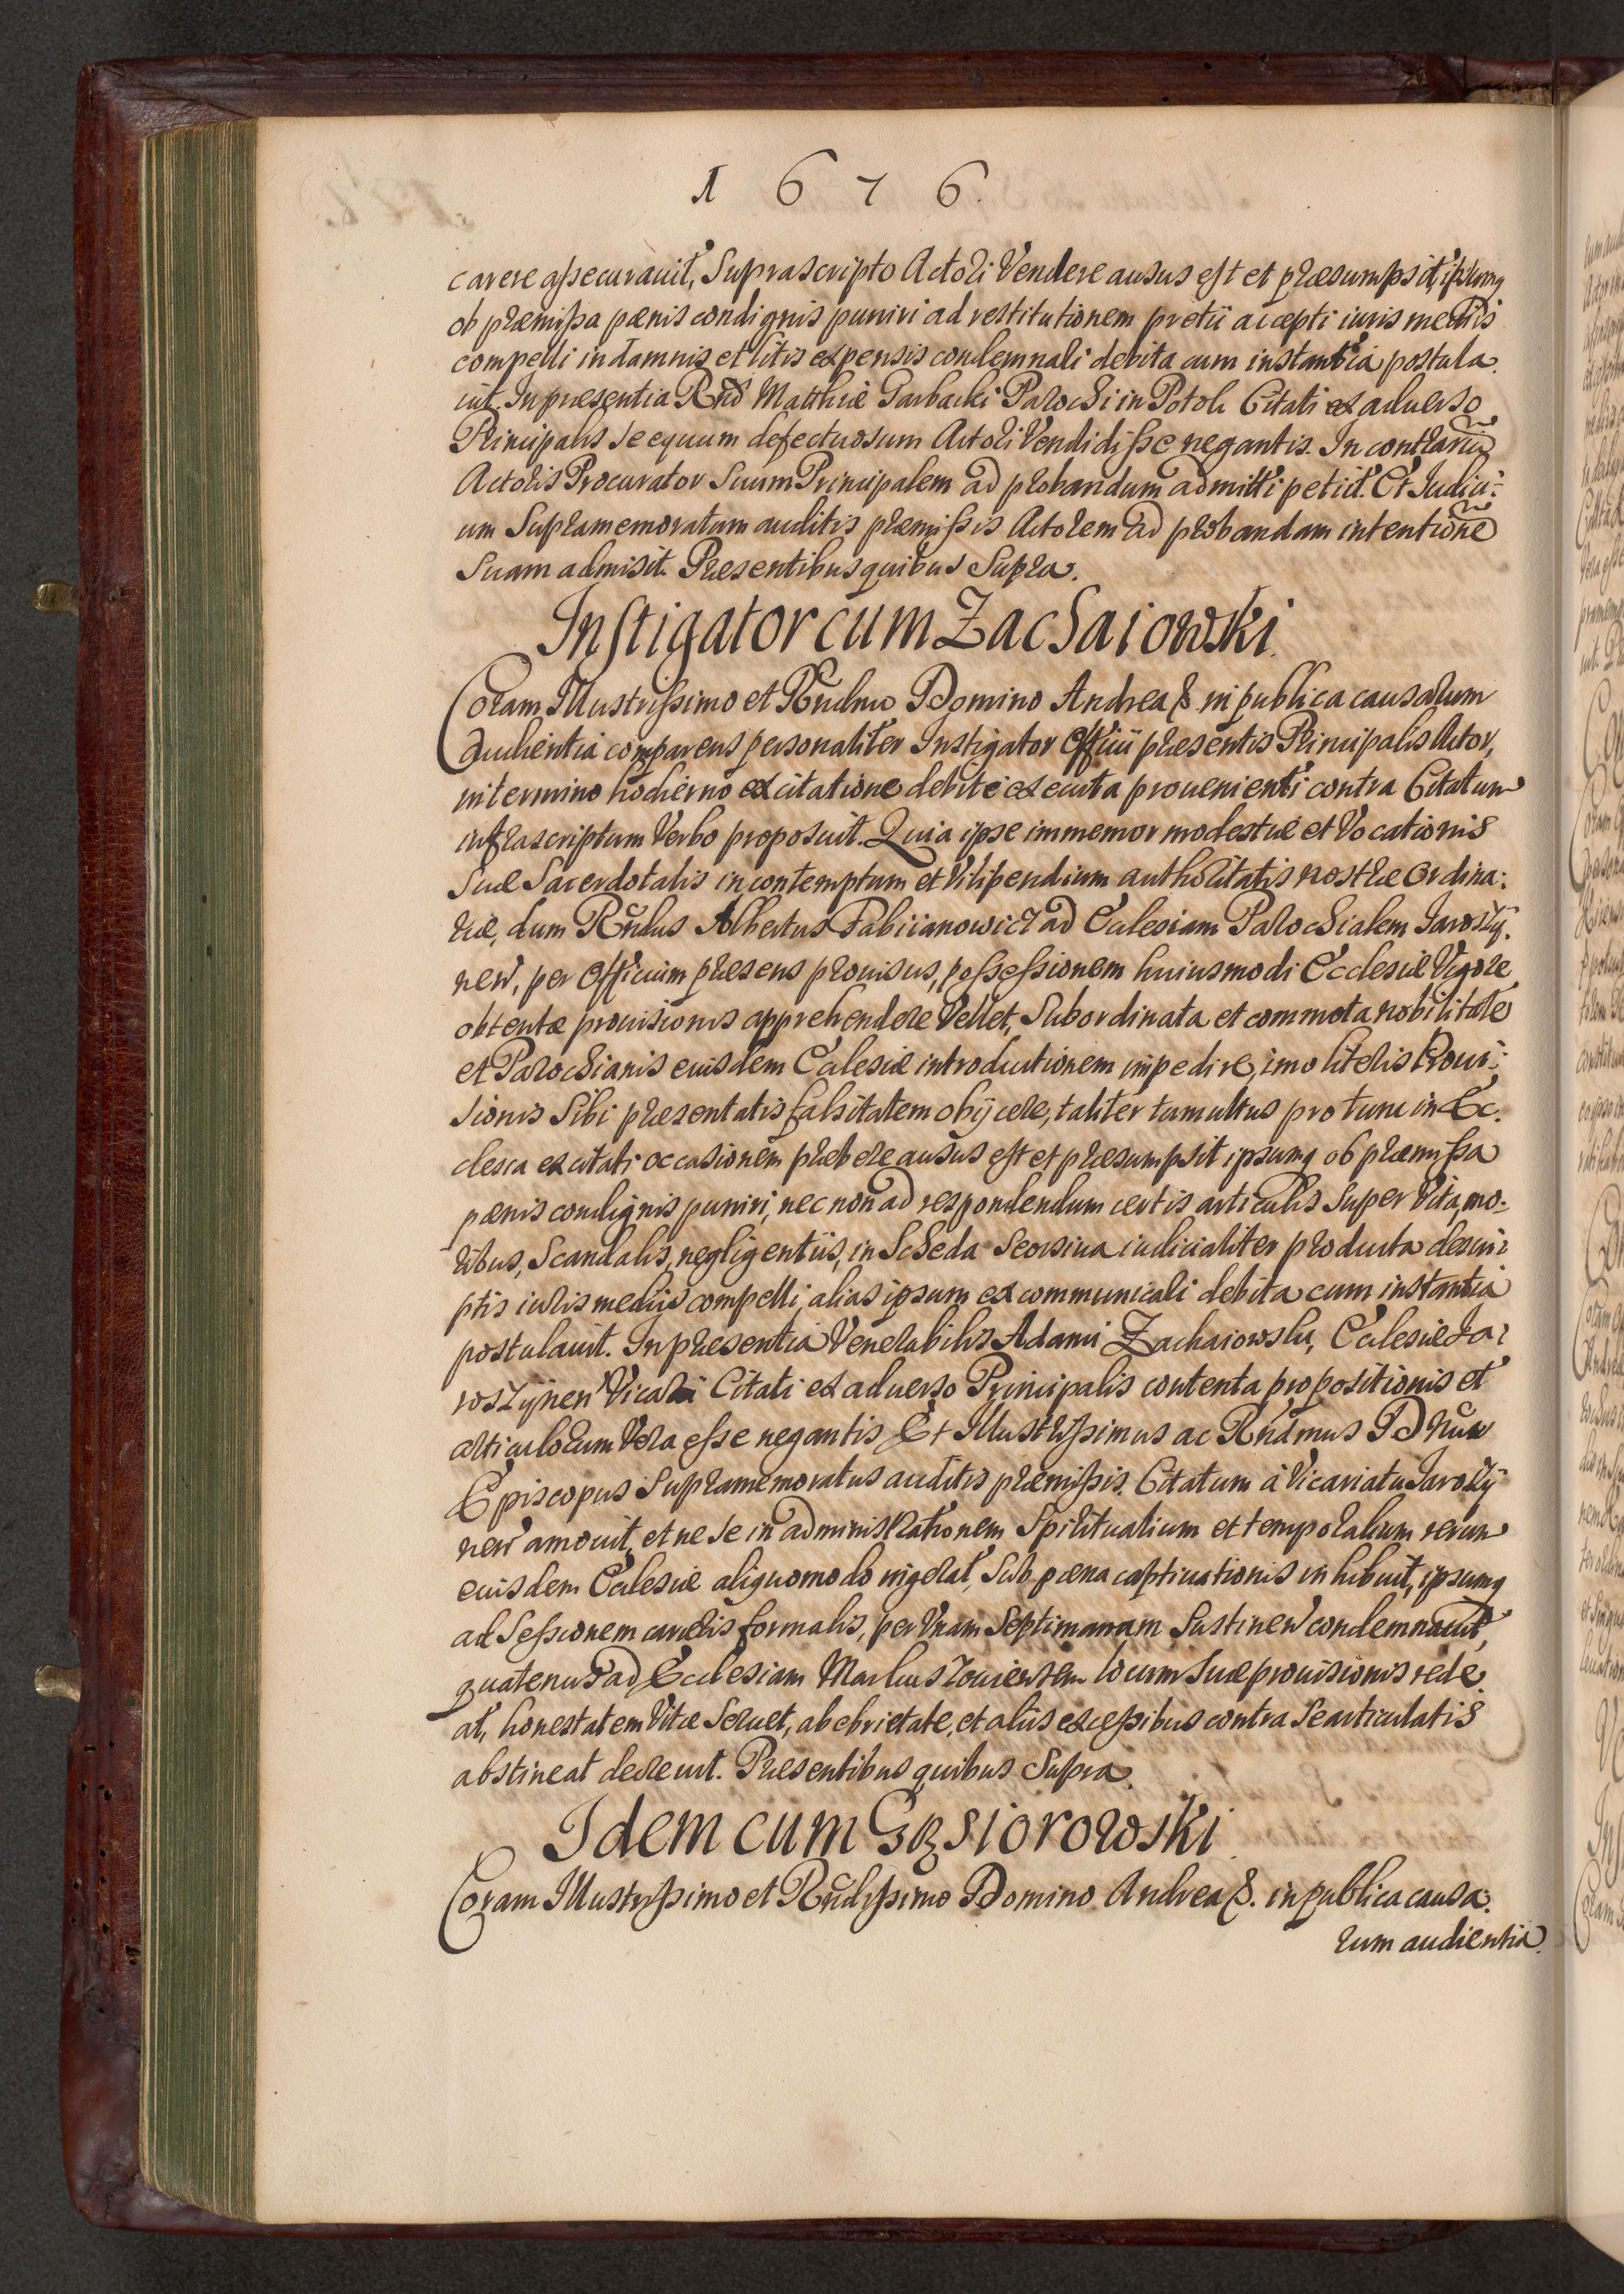 1676
carere assecurauit, Suprascripto Actori Vendere ausus est et præsumpsit, ipsumq
ob præmissa pænis condignis puniri ad restitutionem pretii accepti iuris mediis
compelli in damnis et litis expensis condemnari debita cum instantia postula.
uit. In præsentia Rndi Matthiæ Garbacki Parochi in Potok Citati ex aduerso
Principalis se equum defectuosum Actori Vendidisse negantis. In contrariu
Actoris Procurator Suum Principalem ad probandum admitti petiit. Et Iudici:
um Supramemoratum auditis præmissis Actorem ad probandam intentione
Suam admisit. Præsentibus quibus Supra.
Instigator cum Zachaiowski.
Coram Illustrissimo et Rndmo Domino Andrea &. in publica causarum
Audientia comparens personaliter Instigator Officii præsentis Principalis Actor,
in termino hodierno ex citatione debite executa prouenienti contra Citatum
infrascriptum Verbo proposuit. Quia ipse immemor modestiæ et Vocationis
Suæ Sacerdotalis in contemptum et Vilipendium authoritatis nostræ Ordina:
riæ, dum Rndus Albertus Fabiianowicz ad Ecclesiam Parochialem Iaroszy.
nen, per Officium præsens prouisus, possessionem huiusmodi Ecclesiæ Vigore
obtentæ prouisionis apprehendere Vellet, Subordinata et commota nobilitate
et Parochianis eiusdem Ecclesiæ introductionem impedire, imo literis Proui:
sionis Sibi præsentatis falsitatem obijcere, taliter tumultus pro tunc in Ec.
clesia excitati occasionem præbere ausus est et præsumpsit ipsumq ob præmissa
pænis condignis puniri, nec non ad respondendum certis articulis Super Vita, mo:
ribus, Scandalis, negligentiis, in Scheda Seorsiua iudicialiter producta descri:
ptis iuris mediis compelli, alias ipsum excommunicari debita cum instantia
postulauit. In præsentia Venerabilis Adami Zachaiowski, Ecclesiæ Ia:
roszynen Vicarii Citati ex aduerso Principalis contenta propositionis et
articulorum Vera esse negantis Et Illustrissimus ac Rndmus Dnus
Episcopus Supramemoratus auditis præmissis. Citatum à Vicariatu Iaroszy
nen amouit, et ne se in administrationem Spiritualium et temporalium rerum
eiusdem Ecclesiæ aliquomodo ingerat, Sub pæna captiuationis inhibuit, ipsumq
ad Sessionem carceris formalis, per Vnam Septimanam Sustinen condemnauit,
quatenus ad Ecclesiam Markuszouiensem locum Suæ prouisionis rede.
at, honestatem Vitæ Seruet, ab ebrietate, et aliis excessibus contra Se articulatis
abstineat decreuit. Præsentibus quibus Supra.
Idem cum Gąsiorowski.
Coram Illustrissimo et Rndissimo Domino Andrea &. in publica causa.
rum audientia.